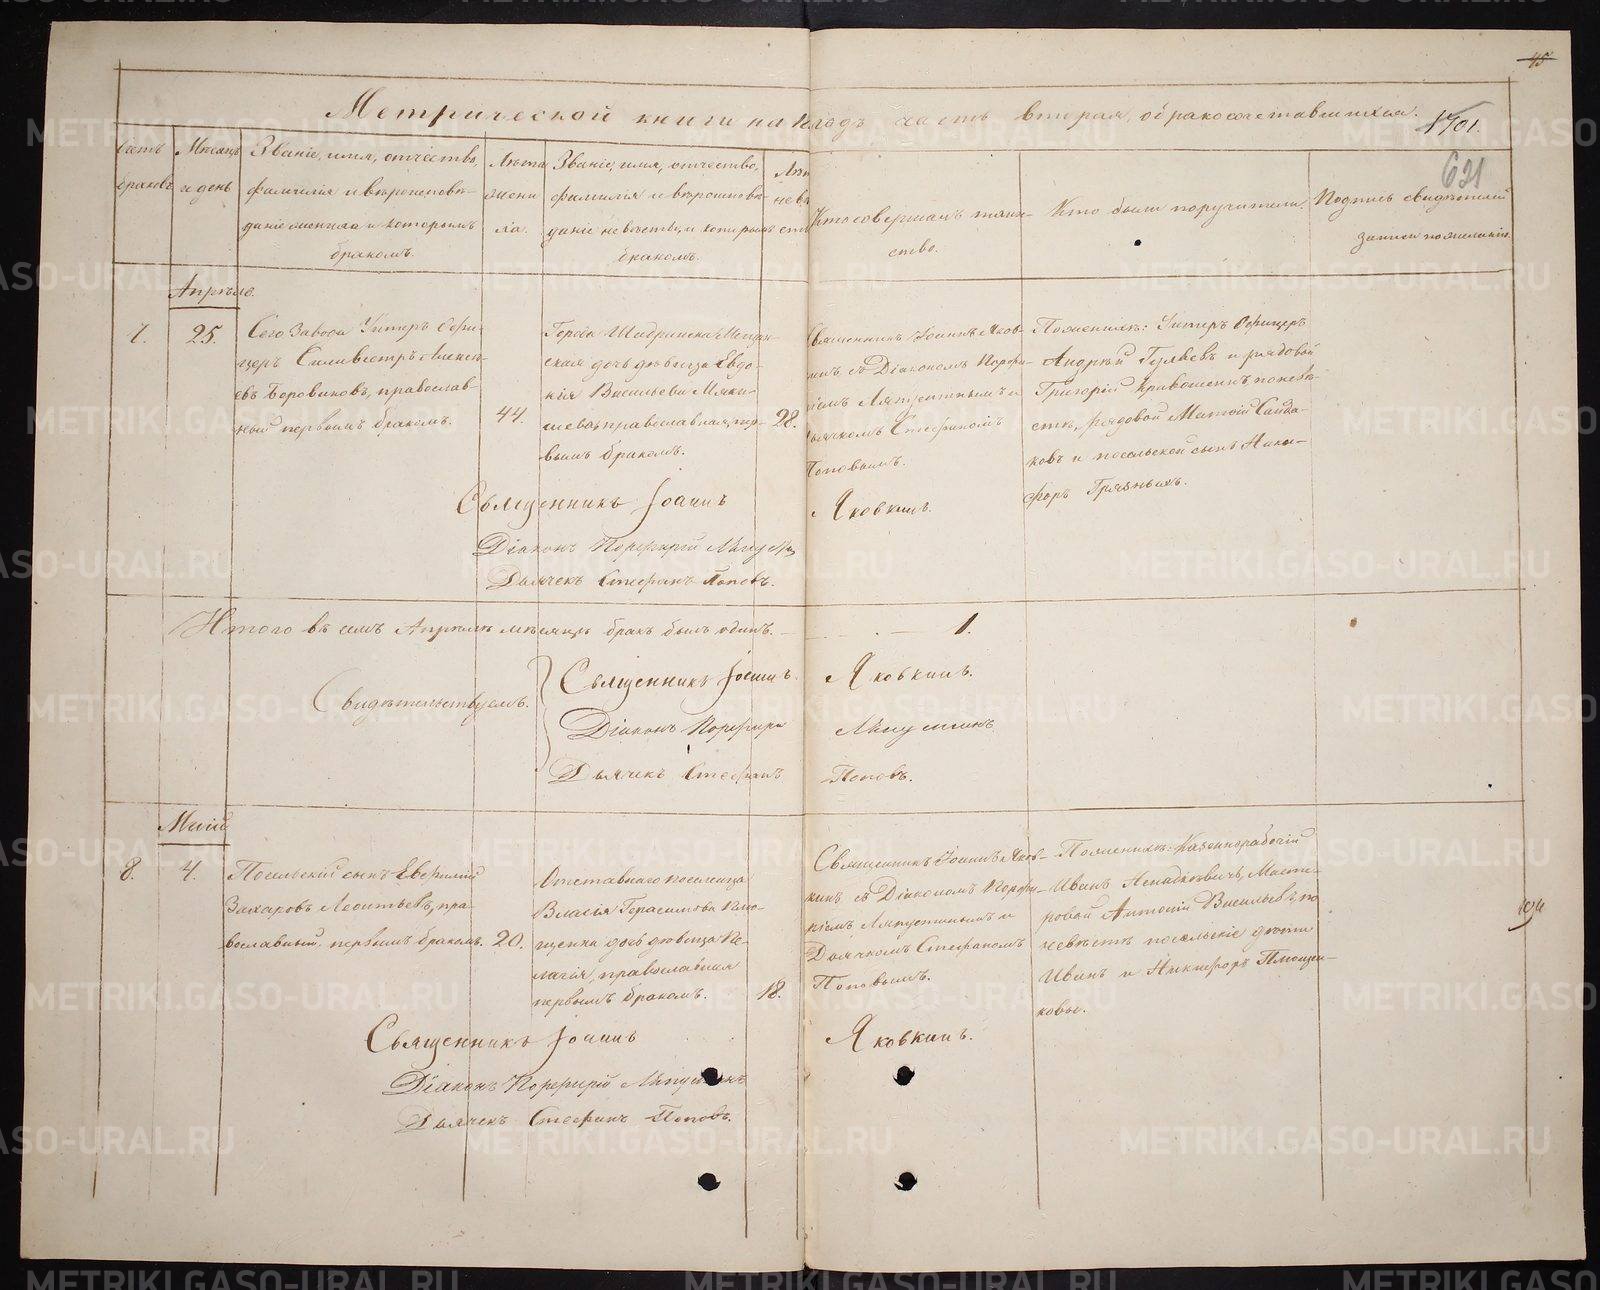 45
Метрической книги на 18 годъ часть вторая, о бракосочетавшихся.
1701.
621
Счетъ браковъ
Мѣсяцъ и день
Званіе, имя, отчество, фамилія и вѣроисповѣданіе жениха и которымъ бракомъ.
Лѣта жениха.
Званіе, имя, отчество, фамилія и вѣроисповѣданіе невѣсты, и которымъ бракомъ.
Лѣта невѣсты
Кто совершалъ таинство.
Кто были поручители.
Подпись свидѣтелей записи по желанію.
Апрѣль.
7.
25.
Сего завода Унтеръ Офи-
церъ Сильвестръ Алексѣ-
евъ Боровиковъ, православ-
ный первымъ бракомъ.
44.
Города Шадринска Мещан-
ская дочь дѣвица Евдо-
кія Васильева Мяки-
шева, православная, пер-
вымъ бракомъ.
28.
Священникъ Іоаннъ Яков-
кинъ съ Діакономъ Порфи-
ріемъ Ляпустинымъ и
Дьячкомъ Стефаномъ
Поповымъ.
По женихѣ: Унтеръ Офицеръ
Андрей Гуляевъ и рядовой
Григорій Кривошеинъ по невѣ-
стѣ, рядовой Матвій Санда-
ковъ и посельской сынъ Ники-
форъ Грязныхъ.
Священникъ Іоаннъ Яковкинъ.
Діаконъ Порфирій Ляпустинъ
Дьячекъ Стефанъ Поповъ.
Итого въ семъ Апрѣлѣ мѣсяцѣ бракъ былъ одинъ. 1.
Свидѣтельствуемъ.
Священникъ Іоаннъ Яковкинъ.
Діаконъ Порфирій Ляпустинъ
Дьячекъ Стефанъ Поповъ.
Маій
8.
4.
Посельскій сынъ Евфимій
Захаровъ Леонтьевъ, пра-
вославный, первымъ бракомъ.
20.
Отставнаго поселенца
Власія Герасимова Пло-
щенка дочь дѣвица Пе-
лагія, православная
первымъ бракомъ.
18.
Священникъ Іоаннъ Яков-
кинъ съ Діакономъ Порфи-
ріемъ Ляпустинымъ и
Дьячкомъ Стефаномъ
Поповымъ.
По женихѣ: Казеннорабочій
Иванъ Масте-
ровой Антоній Васильевъ, по
невѣстѣ посельскіе дѣти
Иванъ и Никифоръ Площен-
ковы.
Священникъ Іоаннъ Яковкинъ.
Діаконъ Порфирій Ляпустинъ
Дьячекъ Стефанъ Поповъ.
METRIKI.GASO-URAL.RU